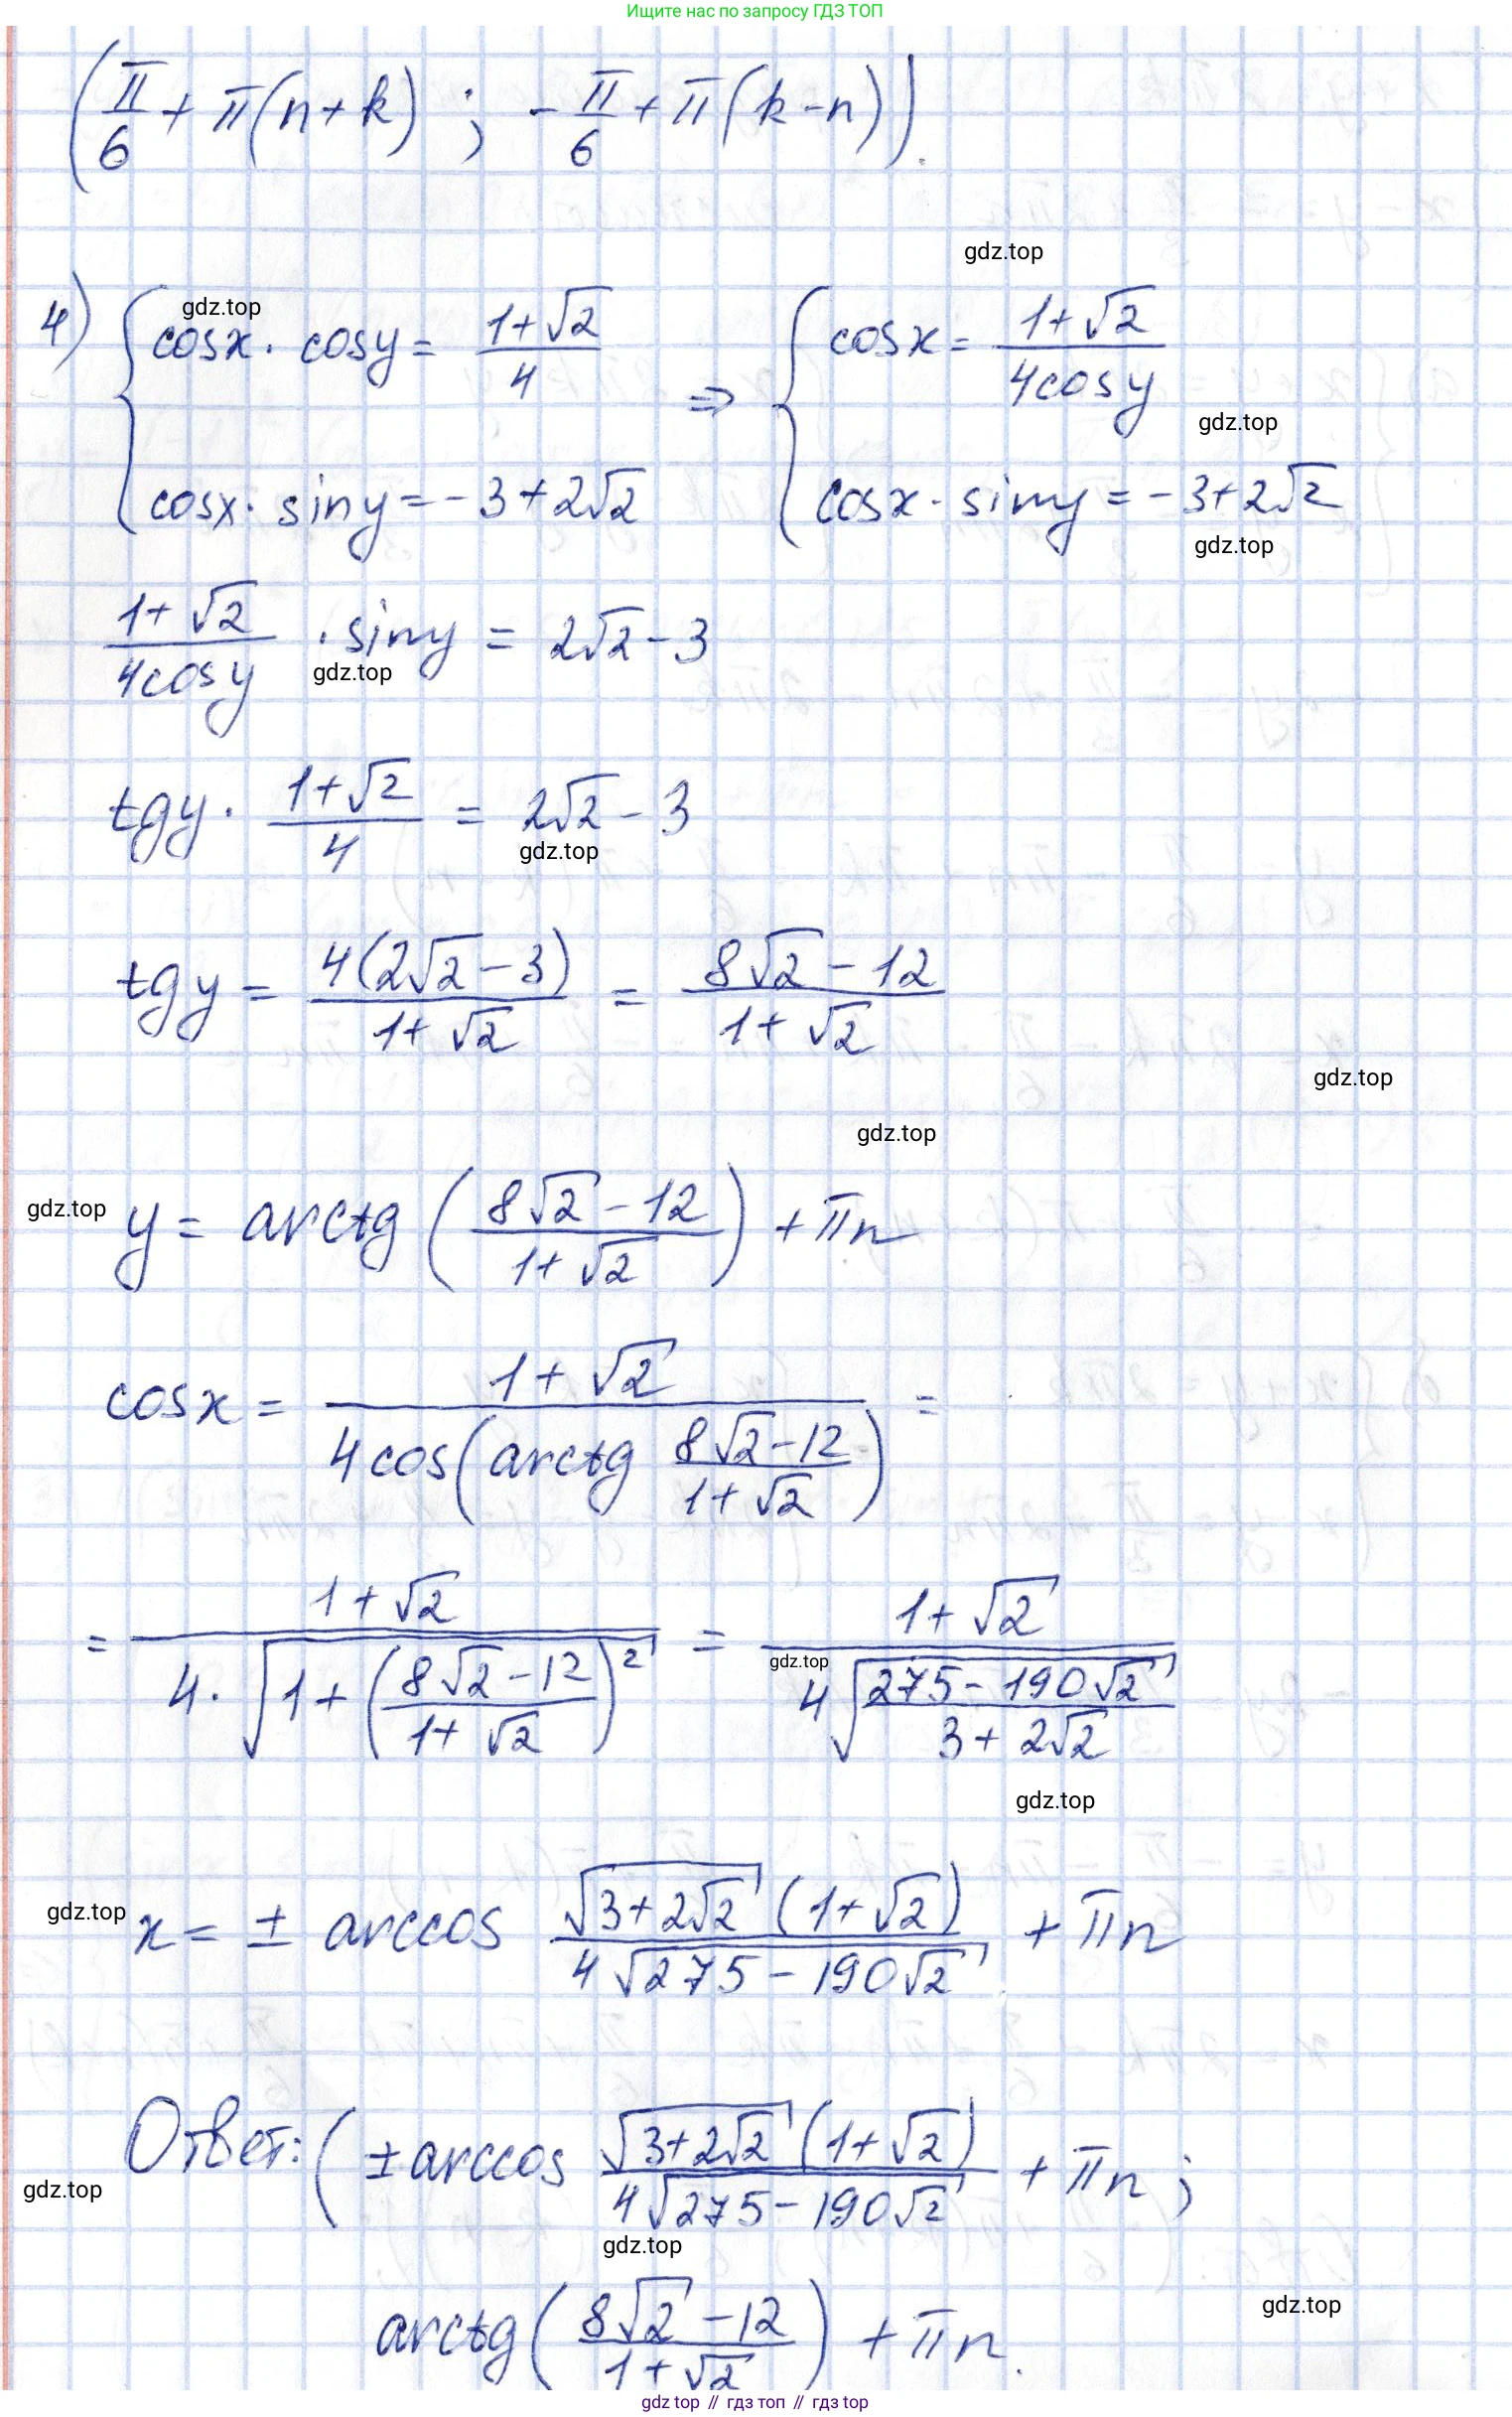 Ищите нас по запросу ГДЗ ТОП
(π/6 + π(n+k) ; -π/6 + π(k-n)).
gdz.top
gdz.top
4) { cosx · cosy = (1+√2)/4 ⇒ { cosx = (1+√2)/(4cosy)
gdz.top
cosx · siny = -3+2√2 cosx · siny = -3+2√2
gdz.top
(1+√2)/(4cosy) · siny = 2√2-3
gdz.top
tgy · (1+√2)/4 = 2√2-3
gdz.top
tgy = 4(2√2-3)/(1+√2) = (8√2-12)/(1+√2)
gdz.top
gdz.top
gdz.top
y = arctg((8√2-12)/(1+√2)) + πn
cosx = (1+√2)/(4cos(arctg (8√2-12)/(1+√2))) =
= (1+√2)/(4·√(1+((8√2-12)/(1+√2))²)) = (1+√2)/(4√((275-190√2)/(3+2√2)))
gdz.top
gdz.top
gdz.top
x = ± arccos (√(3+2√2) (1+√2))/(4√(275-190√2)) + πn
Ответ: (± arccos (√(3+2√2) (1+√2))/(4√(275-190√2)) + πn ;
gdz.top
gdz.top
gdz.top
arctg((8√2-12)/(1+√2)) + πn.
gdz top // гдз топ // гдз top